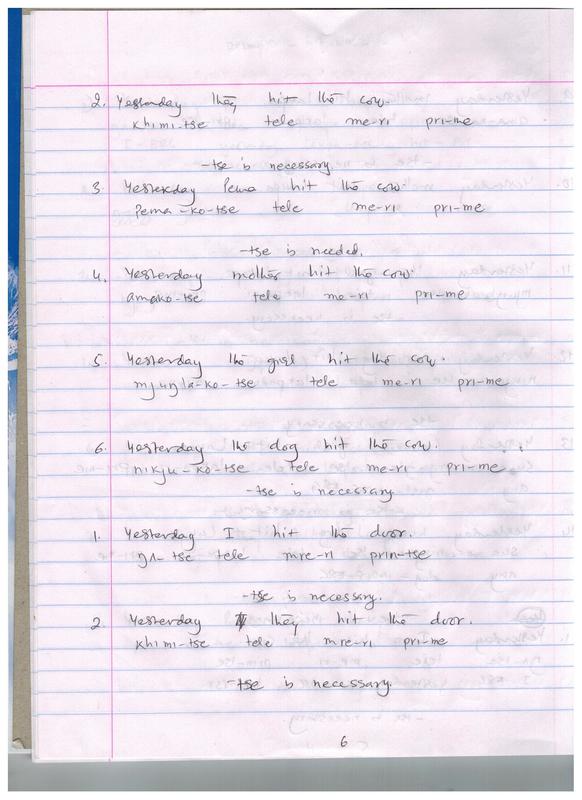 2. Yesterday they hit the cow.
khimi-tse tele me-ri pri-me
-tse is necessary.
3. Yesterday Pema hit the cow.
Pema-ko-tse tele me-ri pri-me
-tse is needed.
4. Yesterday mother hit the cow.
amako-tse tele me-ri pri-me
5. Yesterday the girl hit the cow.
mjuŋla-ko-tse tele me-ri pri-me
6. Yesterday the dog hit the cow.
nikju-ko-tse tele me-ri pri-me
-tse is necessary
1. Yesterday I hit the door.
ŋʌ-tse tele mre-ri prin-tse
-tse is necessary.
2. Yesterday they hit the door.
khimi-tse tele mre-ri pri-me
-tse is necessary.
6